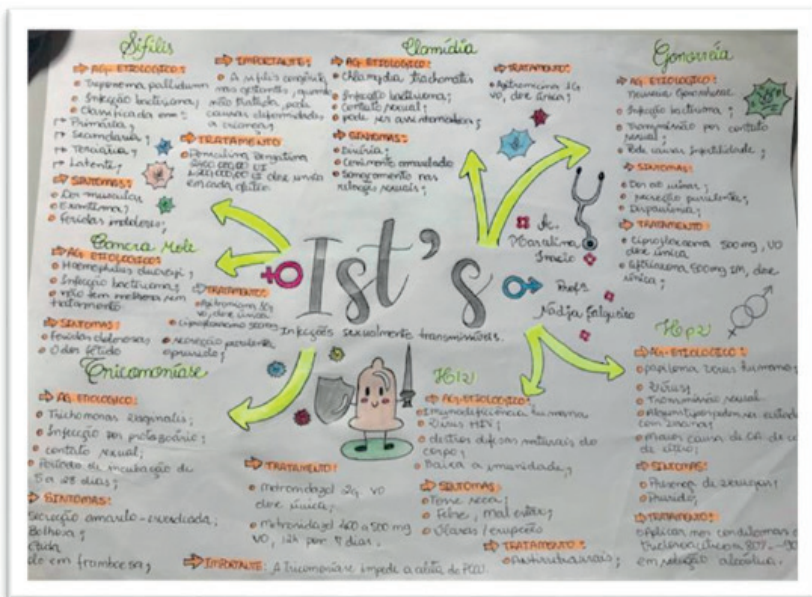 Sífilis
⇨ AG. ETIOLOGICO:
Treponema pallidum
Infecção bacteriana;
Classificada em:
Primária;
Secundaria;
Terciária;
Latente;
⇨ SINTOMAS:
Dor muscular
Exantema;
Feridas indolores;
⇨ IMPORTANTE:
A sífilis congênita
nas gestantes, quando
não tratada, pode
causar deformidades
a criança;
⇨ TRATAMENTO
Penicilina Benzatina
dose única
em cada glúteo
Clamídia
⇨ AG. ETIOLOGICO:
Chlamydia trachomatis
Infecção bacteriana;
Contato sexual;
pode ser assintomatica;
⇨ SINTOMAS:
Disúria;
Corrimento amarelado
Sangramento nas
relações sexuais;
⇨ TRATAMENTO:
Azitromicina 1G
VO, dose única;
Gonorréia
AG. ETIOLOGICO:
Neisseria Gonorrhoeae
Infecção bacteriana;
Transmissão por contato
sexual;
Pode causar infertilidade;
⇨ SINTOMAS:
Dor ao urinar;
secreção purulenta;
Dispareunia;
⇨ TRATAMENTO:
Ciprofloxacina 500mg, VO
dose única
Ceftriaxona 500mg IM, dose
única;
Cancro Mole
AG. ETIOLOGICO:
Haemophilus ducreyi;
Infecção bacteriana;
não tem melhora sem
tratamento
⇨ SINTOMAS
Feridas dolorosas
Odor fétido
⇨ TRATAMENTO:
VO, dose única;
Ciprofloxacina 500mg
secreção purulenta
Ist's
Infecções sexualmente transmissíveis.
Ac.
Inacio
Profª
Nadja
Tricomoníase
AG. ETIOLOGICO:
Trichomonas vaginalis;
Infecção por protozoário;
contato sexual;
Período de incubação de
5 a 28 dias;
⇨ SINTOMAS:
Secreção amarelo-esverdeada;
Bolhosa;
do em framboesa;
⇨ TRATAMENTO:
Metronidazol 2g. VO
dose única;
Metronidazol 400 a 500 mg
VO, 12h por 7 dias.
⇨ IMPORTANTE: A tricomoníase impede a coleta do PCCU.
Hiv
⇨ AG. ETIOLOGICO:
Imunodeficiência humana
Vírus HIV;
defesas naturais do
corpo;
Baixa a imunidade;
⇨ SINTOMAS
Tosse seca;
Febre, mal estar;
Úlceras/erupção
⇨ TRATAMENTO:
Antiretrovirais;
Hpv
AG. ETIOLOGICO:
papiloma vírus humano;
Vírus;
Transmissão sexual
Maior causa de CA de co
⇨ SINTOMAS:
Presença de verrugas;
Prurido;
⇨ TRATAMENTO:
Aplicar nos condilomas o
80% - 90
em solução alcoólica.